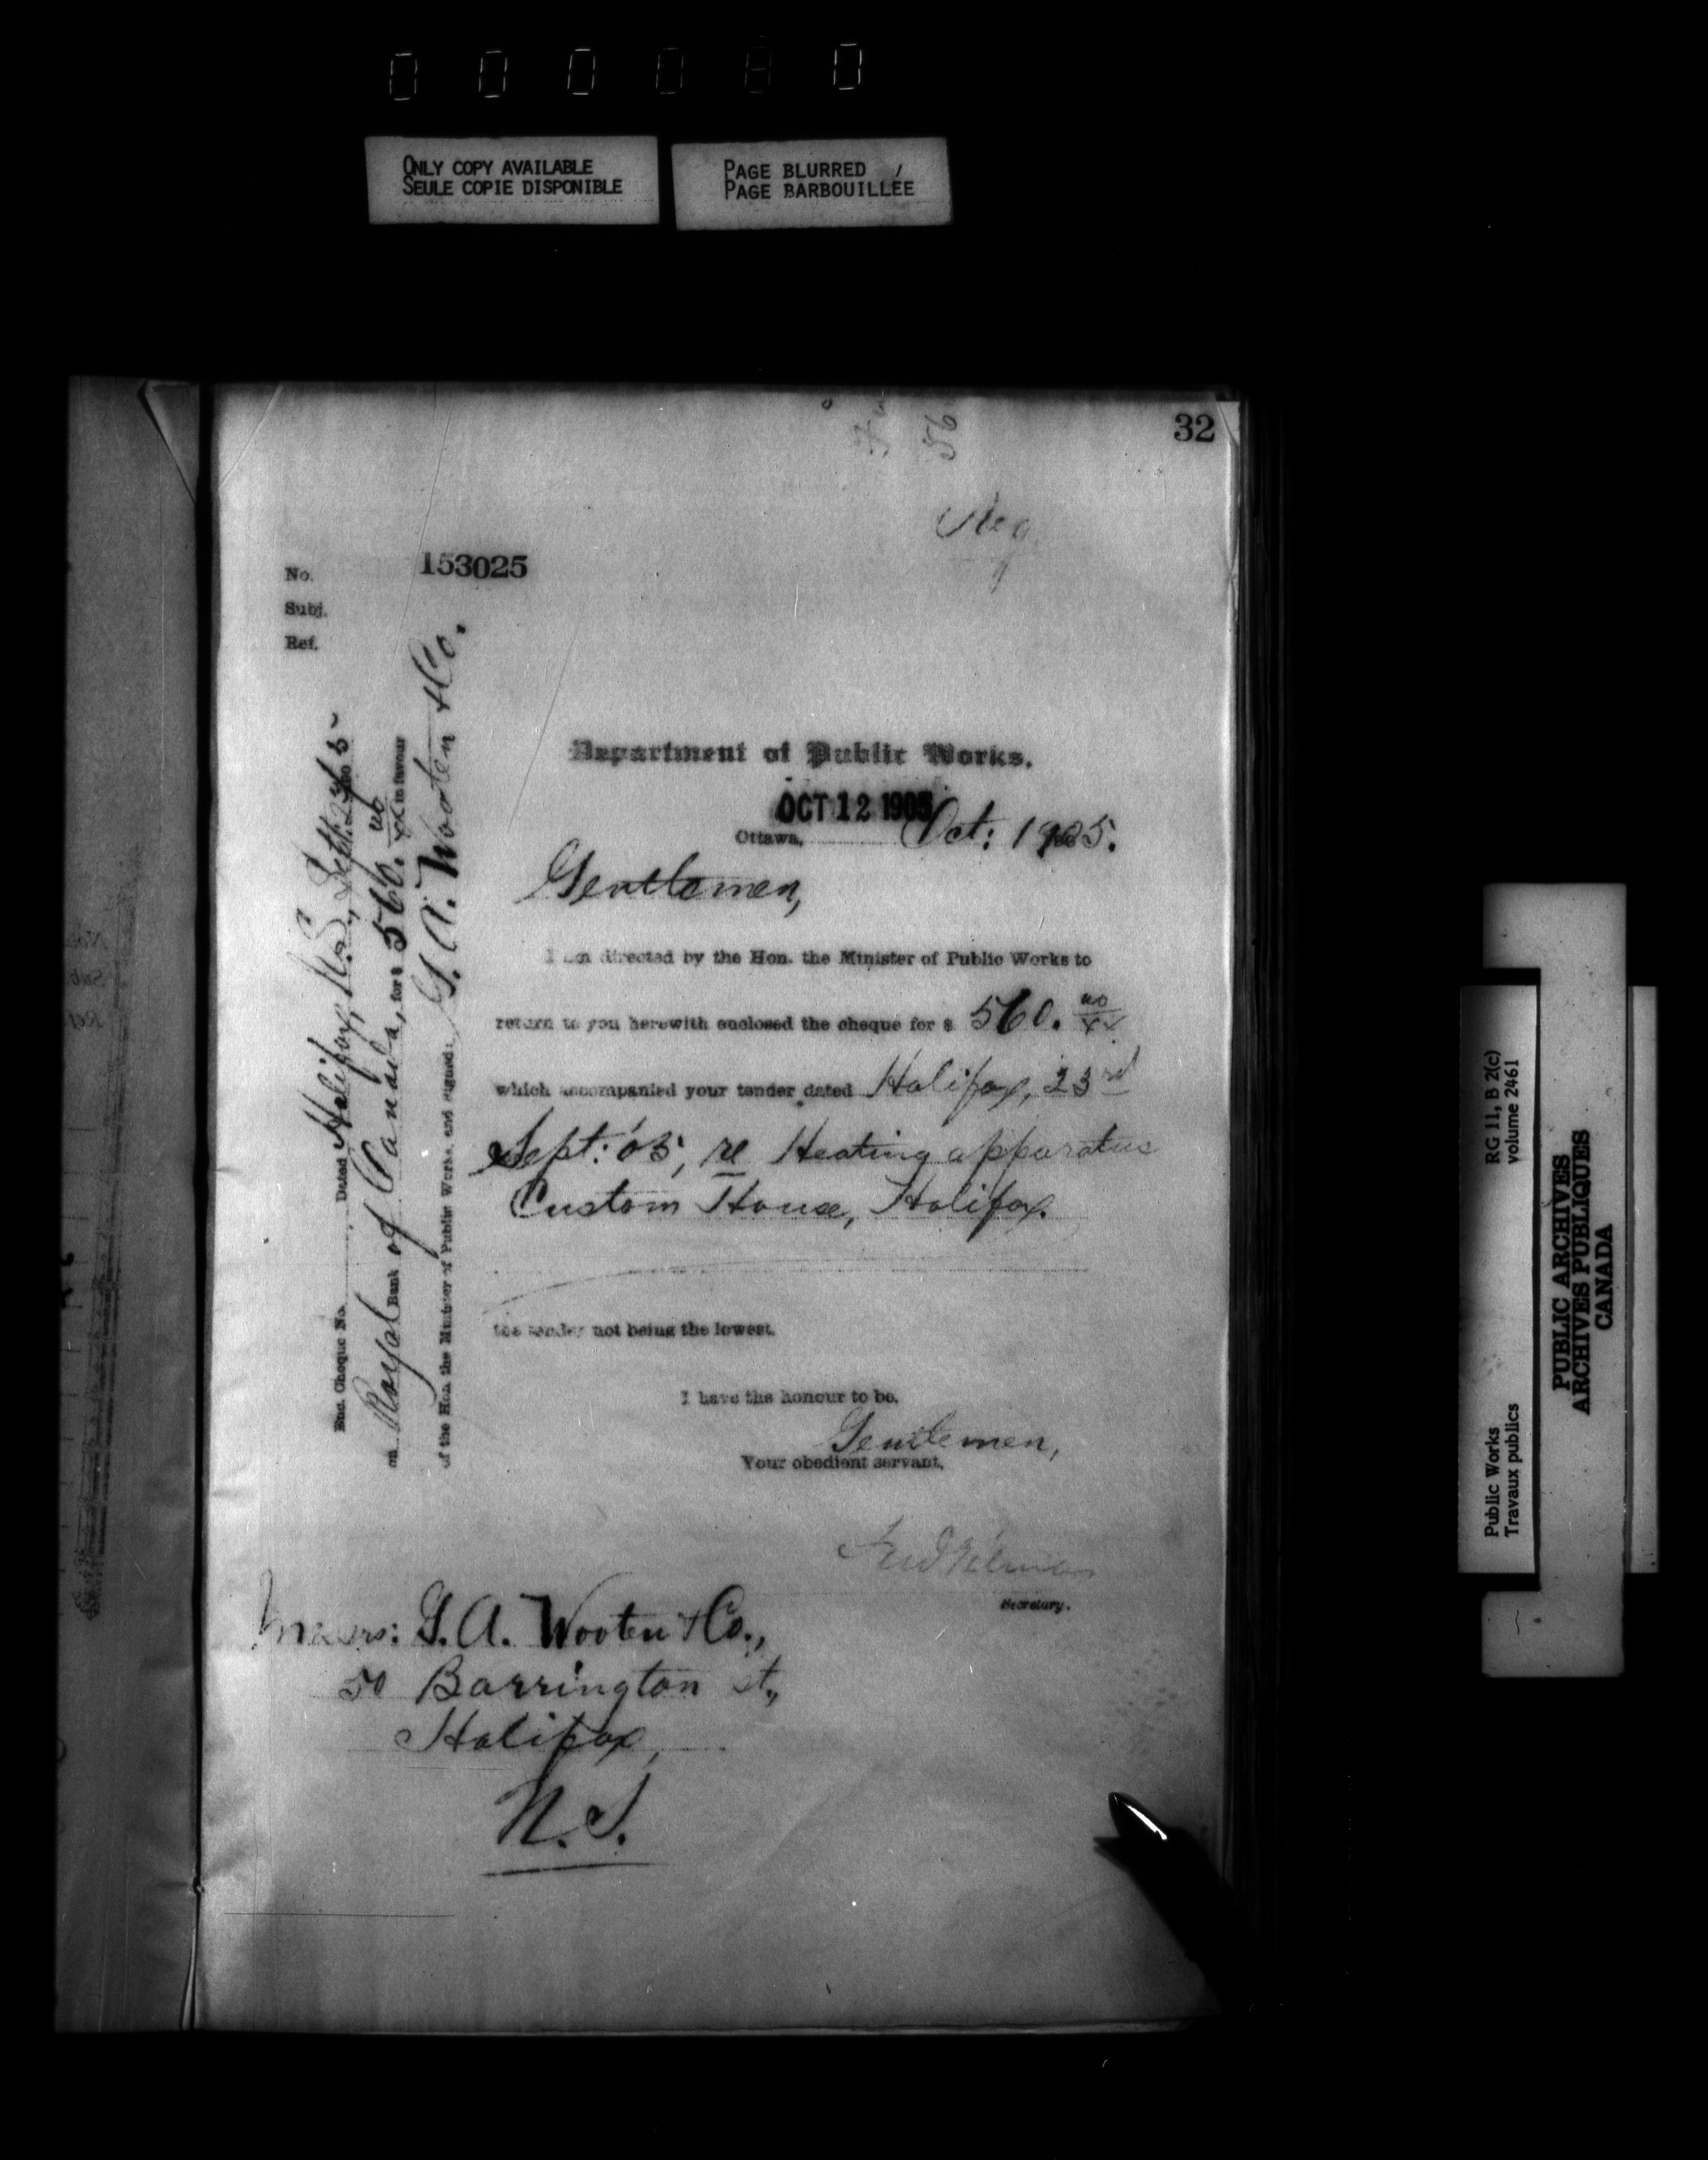 ONLY COPY AVAILABLE
SEULE COPIE DISPONIBLE
PAGE BLURRED
PAGE BARBOUILLÉE
32
Reg
No. 153025
Subj.
Ref.
Department of Public Works.
OCT 12 1905
Ottawa, Oct: 1905.
Gentlemen,
I am directed by the Hon. the Minister of Public Works to
return to you herewith enclosed the cheque for $ 560. no/xx
which accompanied your tender dated Halifax, 23rd
Sept: '05, re Heating apparatus
Custom House, Halifax.
the tender not being the lowest.
I have the honour to be,
Gentlemen,
Your obedient servant,
Secretary.
Messrs: G. A. Wooten & Co.,
50 Barrington st.,
Halifax,
N.S.
Enc. Cheque No. Dated Halifax, N.S., Sept: 23rd 5
on Royal Bank of Canada, for $ 560. no/xx in favour
of the Hon. the Minister of Public Works, and signed: G. A. Wooten & Co.
RG 11, B 2(c)
volume 2461
Public Works
Travaux publics
PUBLIC ARCHIVES
ARCHIVES PUBLIQUES
CANADA